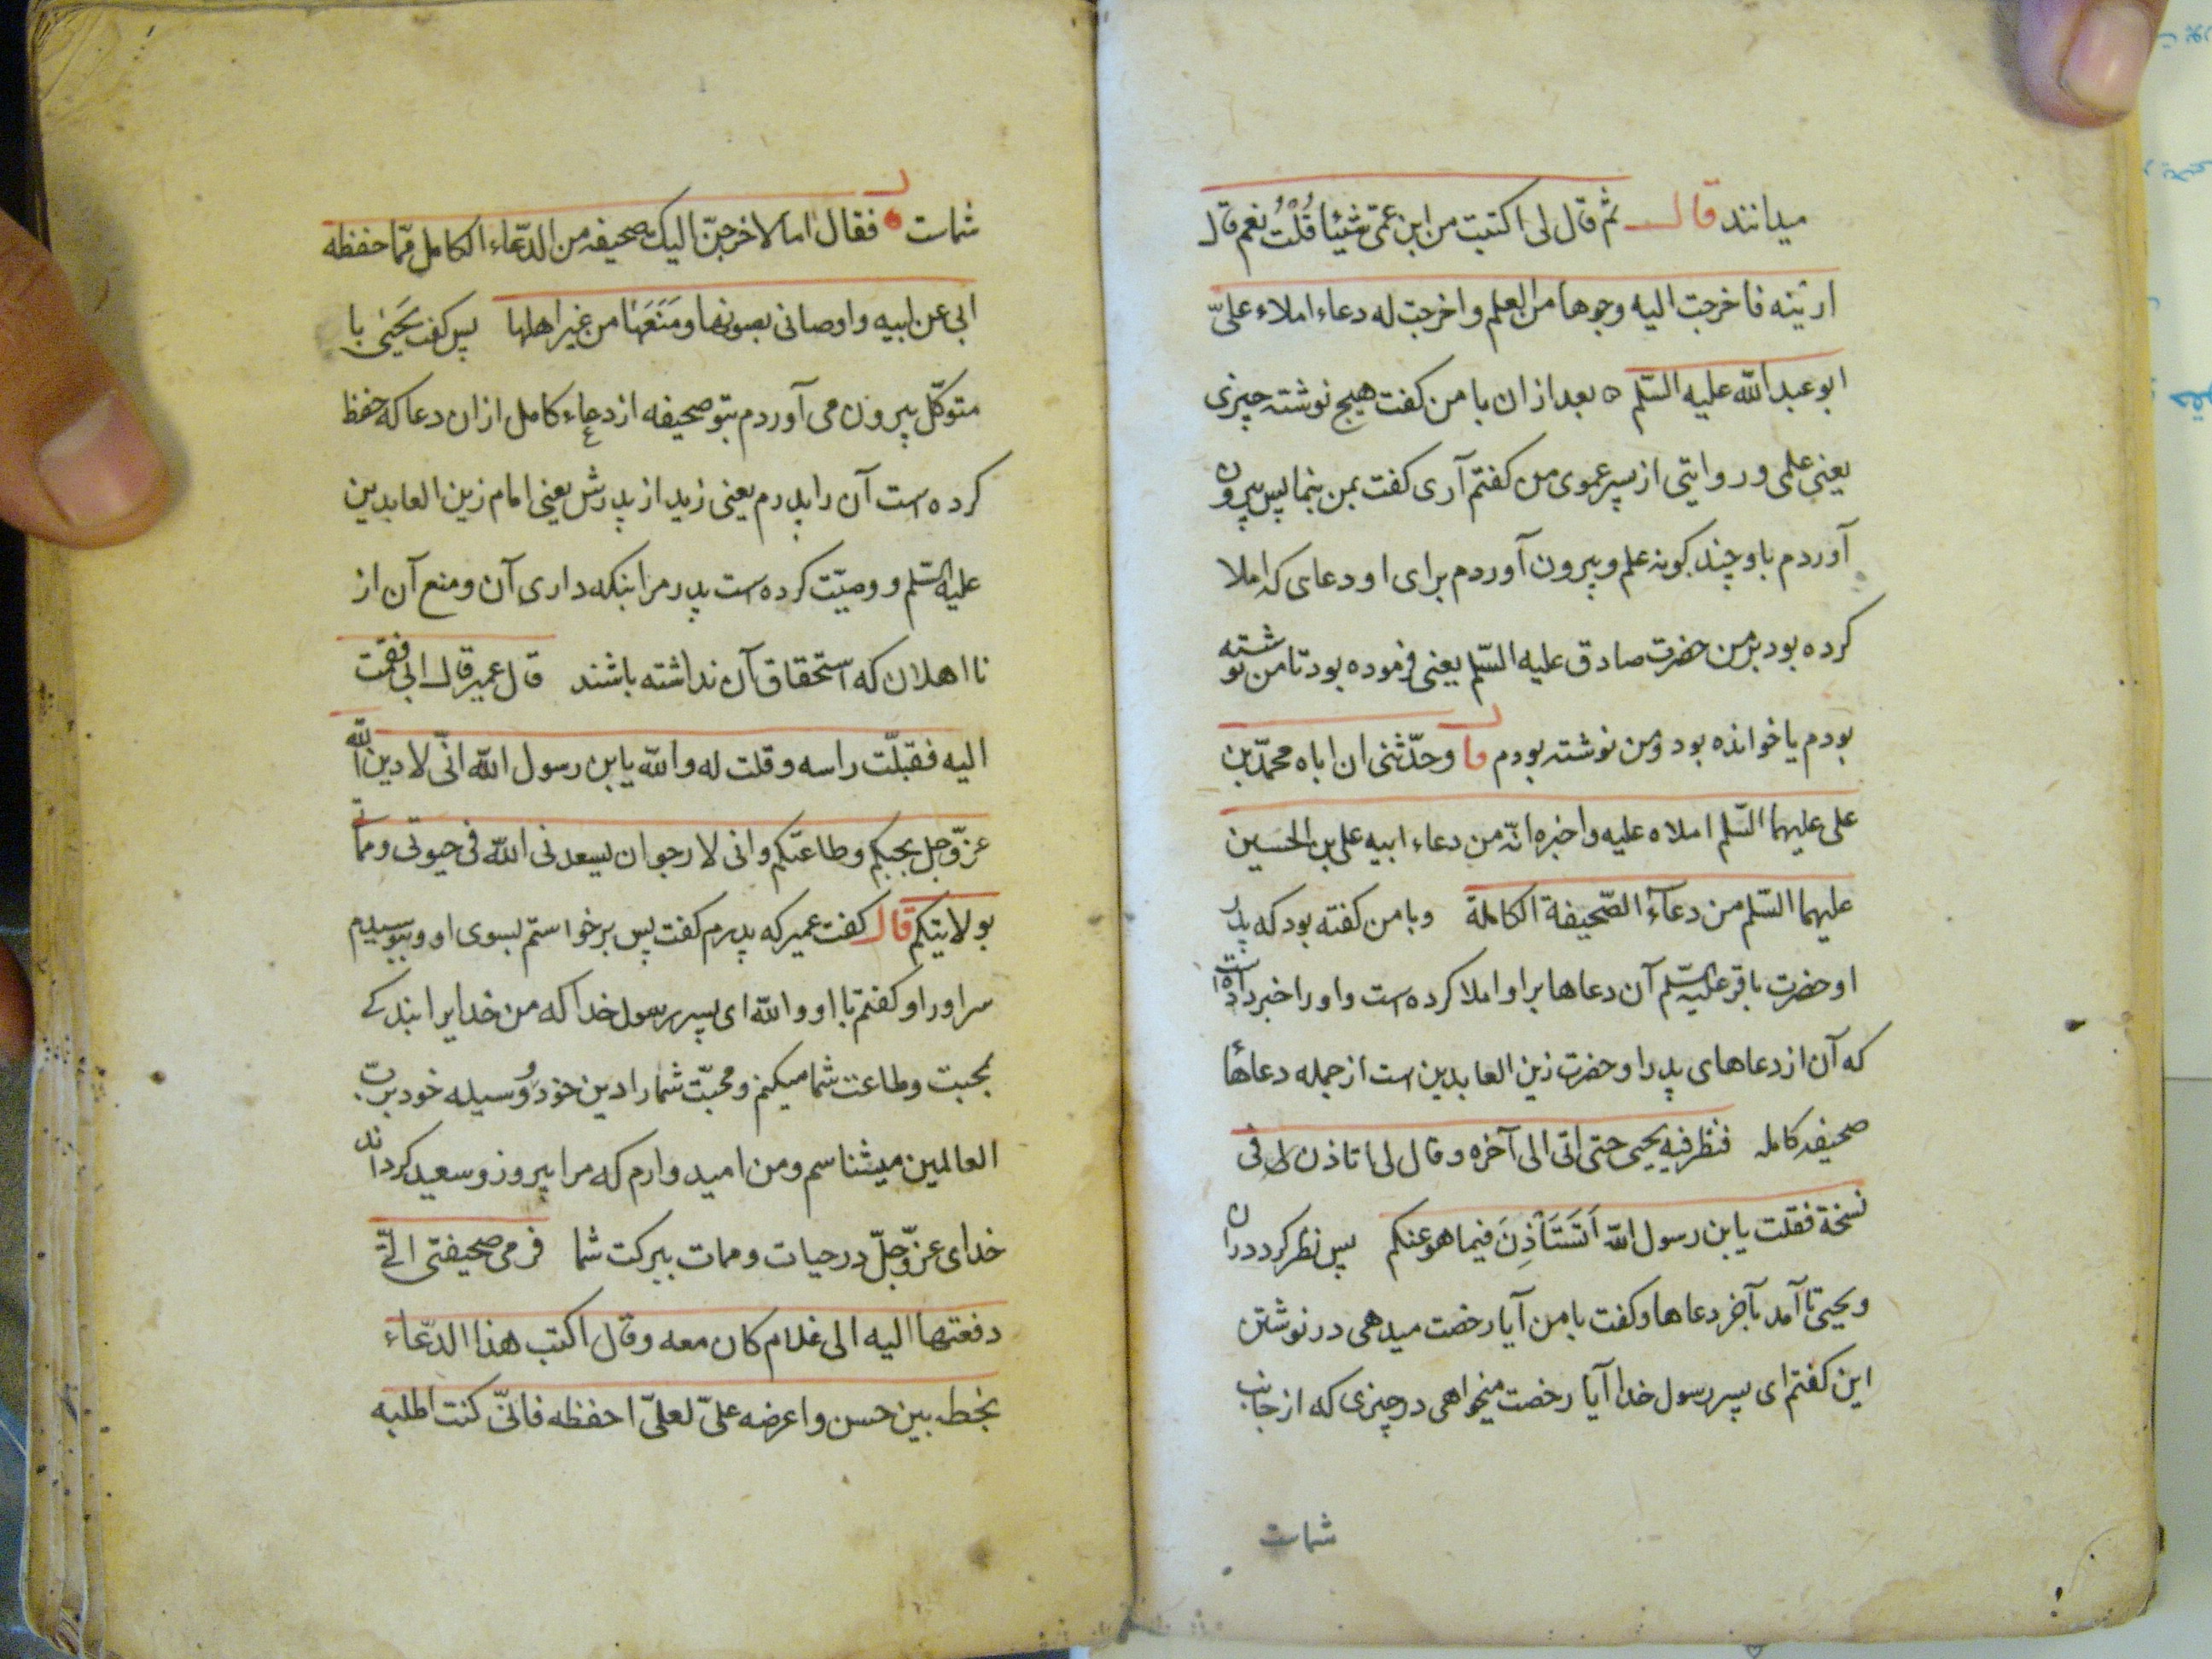 میدانند قال ثم قال لی اکتبت من ابن عمّی شیئا قُلْتُ نعم قال
ارینه فاخرجت الیه وجوها من العلم واخرجت له دعاء املاء علیّ
ابو عبد الله علیه السّلم ه بعد ازان با من کفت هیچ نوشتهٔ چیزی
یعنی علمی و روایتی از پسر عموی من کفتم آری کفت بمن بنما پس بیرون
آوردم باو چند کونه علم و بیرون آوردم برای او دعای که املا
کرده بود بر من حضرت صادق علیه السّلم یعنی فرموده بود تا من نوشته
بودم یا خوانده بود و من نوشته بودم قال وحدّثنی ان اباه محمّد بن
علی علیهما السّلم املاه علیه واخبره انّه من دعاء ابیه علی بن الحسین
علیهما السّلم من دعآء الصّحیفة الکاملة و با من کفته بود که پدر
او حضرت باقر علیه السّلم آن دعاها بر او املا کرده است و او را خبر داده است
که آن از دعاهای پدر او حضرت زین العابدین است از جمله دعاهاء
صحیفه کامله فنظر فیه یحیی حتی اتی الی آخره وقال لی اتاذن لی فی
نسخة فقلت یابن رسول الله اَتَستَاْذِنَ فیما هو عنکم پس نظر کرد در ان
و یحیی تا آمد بآخر دعاها و کفت با من آیا رخصت میدهی در نوشتن
این کفتم ای پسر رسول خدا آیا رخصت میخواهی در چیزی که از جانب
شماست
شماست فقال اما لاخرجنّ الیک صحیفه من الدّعاء الکامل ممّا حفظه
ابی عن ابیه واوصانی بصونها ومَنَعَها من غیر اهلها پس کفت یحیی با
متوکّل بیرون می آوردم بتو صحیفه از دعاء کامل ازان دعا که حفظ
کرده است آن را پدرم یعنی زید از پدرش یعنی امام زین العابدین
علیه السّلم و وصیّت کرده است پدر مرا بنکه داری آن و منع آن از
نا اهلان که استحقاق آن نداشته باشند قال عمیر قال ابی فقمت
الیه فقبلّت راسه وقلت له والله یابن رسول الله انّی لادین الله
عزّوجلّ بحبکم وطاعتکم وانی لارجو ان یسعدنی الله فی حیوتی ومماتی
بولایتکم قال کفت عمیر که پدرم کفت پس برخواستم بسوی او و ببوسیدم
سر او را و کفتم با او والله ای پسر رسول خدا که من خدایرا بندکی
بمحبت و طاعت شما میکنم و محبّت شما را دین خود و وسیله خود برب
العالمین میشناسم و من امیدوارم که مرا پیروز و سعید کرداند
خدای عزّوجلّ در حیات و ممات ببرکت شما فرمی صحیفتی الّتی
دفعتها الیه الی غلام کان معه وقال اکتب هذا الدّعاء
بخط بین حسن واعرضه علیّ لعلیّ احفظه فانیّ کنت اطلبه